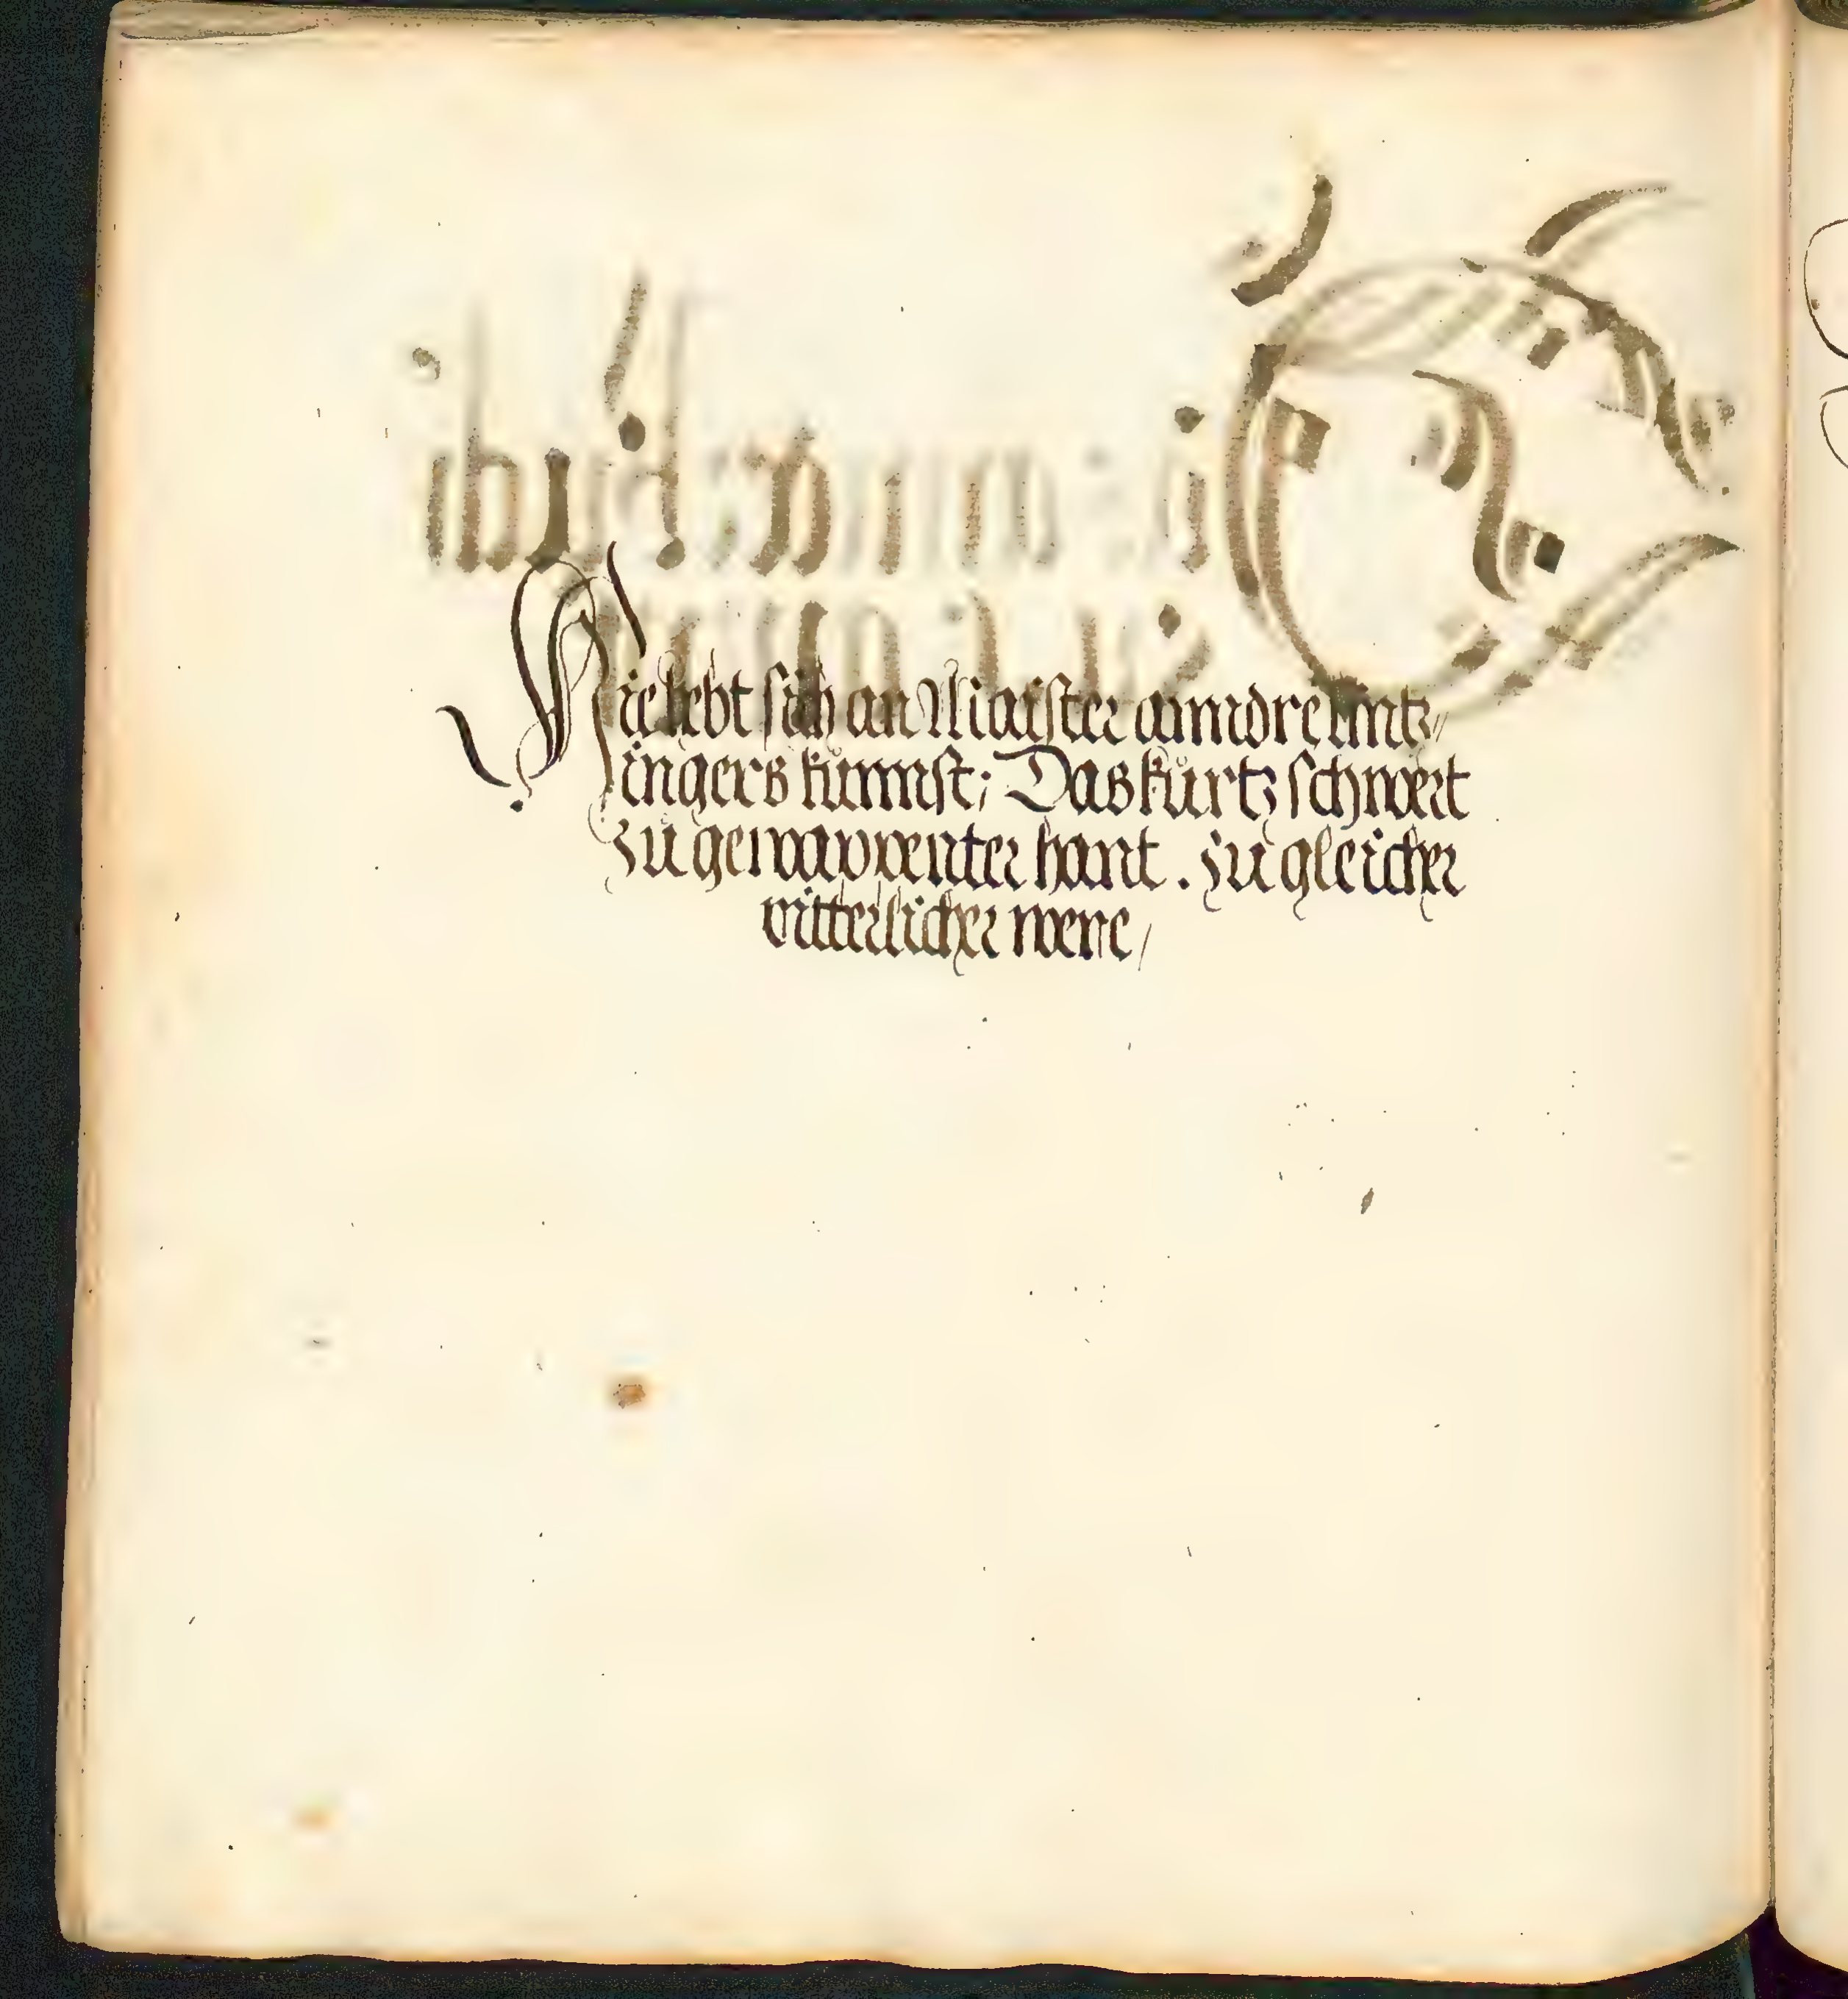 Hie hebt sich an Maister anndre lintz„
ingers kunnst; Das kurtz schwert
zů gewappenter hant . zu gleicher
ritterlicher were /